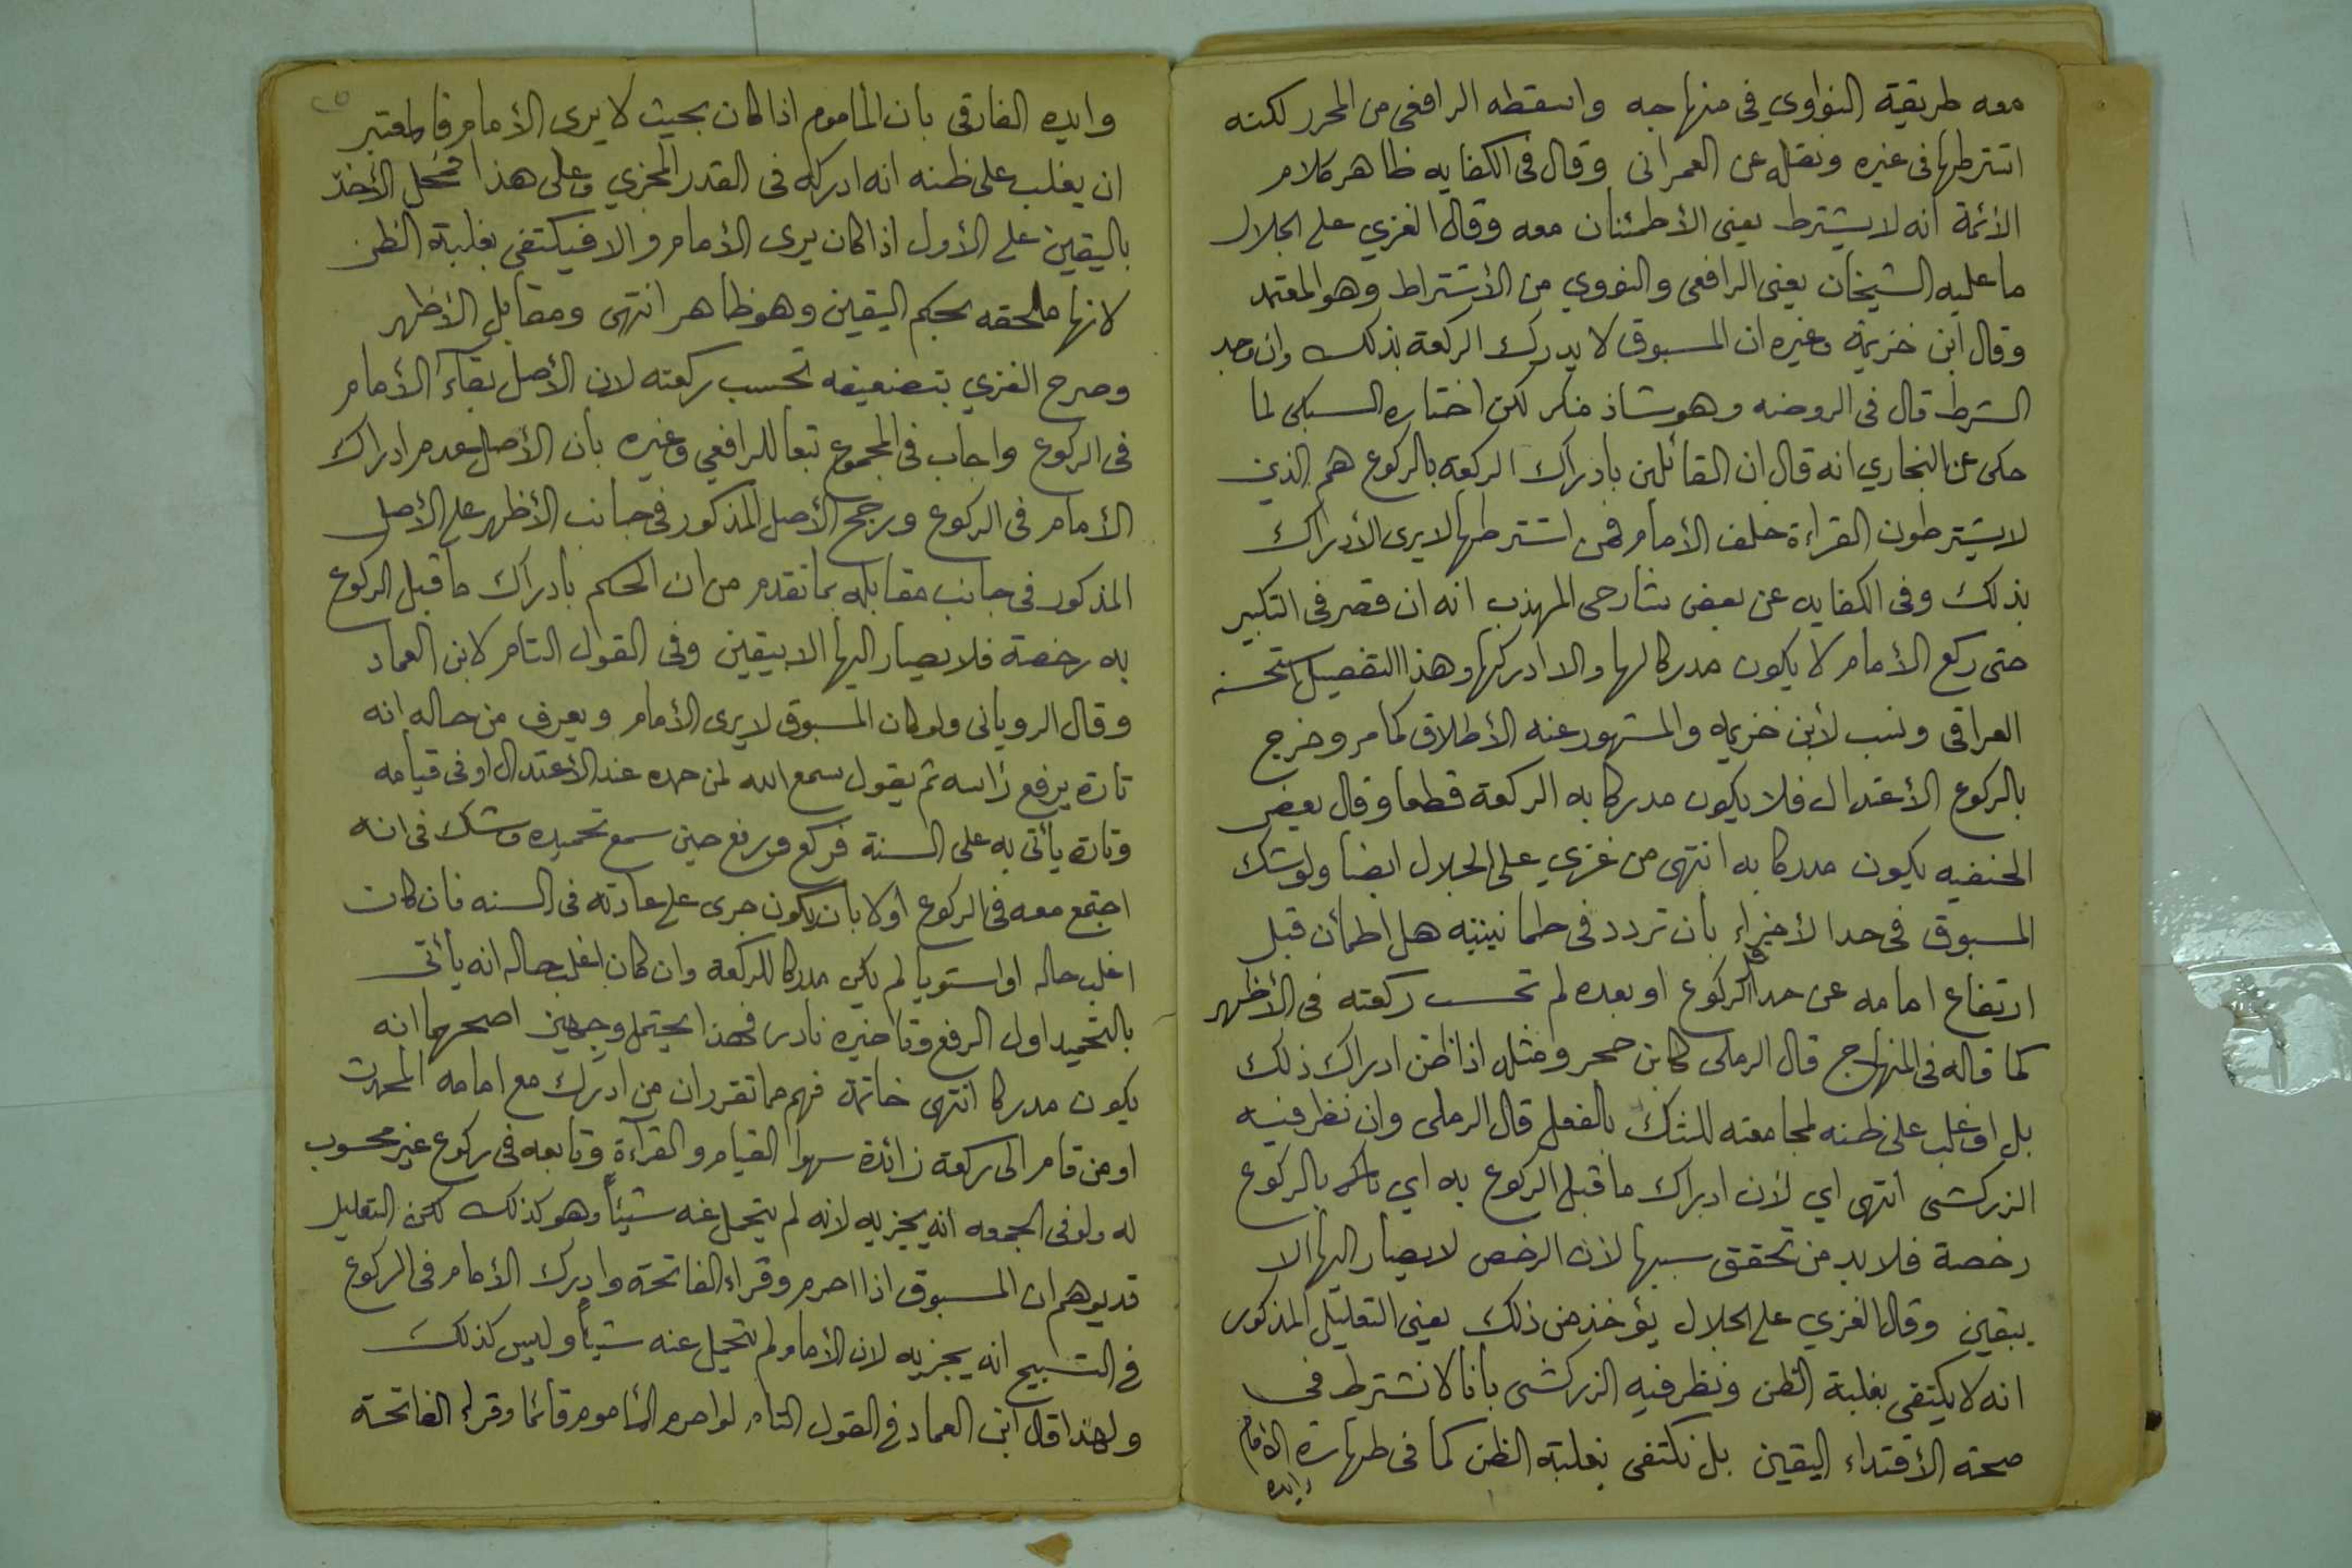 معه طريقة النواوي في منهاجه واسقطه الرافعي من المحرر لكنه
اشترطها في غيره ونقله عن العمراني وقال في الكفايه ظاهر كلام
الأئمة انه لا يشترط يعني الأطمئنان معه وقال الغزي على الجلال
ما عليه الشيخان يعني الرافعي والنووي من الأشتراط وهو المعتمد
وقال ابن خزيمة وغيره ان المسبوق لا يدرك الركعة بذلك وان وجد
الشرط قال في الروضه وهو شاذ منكر لكن اختاره السبكي لما
حكى عن البخاري انه قال ان القائلين بادراك الركعة بالركوع هم الذين
لا يشترطون القراءة خلف الأمام فمن اشترطها لا يرى الأدراك
بذلك وفي الكفايه عن بعض شارحي المهذب انه ان قصر في التكبير
حتى ركع الأمام لا يكون مدركا لها والا ادركها وهذا التفصيل استحسنه
العراقي ونسب لأبن خزيمه والمشهور عنه الأطلاق كما مر وخرج
بالركوع الأعتدال فلا يكون مدركا به الركعة قطعا وقال بعض
الحنفيه يكون مدركا به انتهى من غزي على الجلال ايضا ولو شك
المسبوق في حد الأجزاء بان تردد في طمانينته هل اطمأن قبل
ارتفاع امامه عن حد اقل الركوع او بعده لم تحسب ركعته في الأظهر
كما قاله في المنهاج قال الرملي كابن حجر ومثله اذا ظن ادراك ذلك
بل او غلب على ظنه لمجامعته للشك بالفعل قال الرملي وان نظر فيه
الزركشي انتهى اي لأن ادراك ما قبل الركوع به اي بالركوع
رخصة فلا بد من تحقق سببها لأن الرخص لا يصار اليها الا
بيقين وقال الغزي على الجلال يؤخذ من ذلك يعني التعليل المذكور
انه لا يكتفى بغلبة الظن ونظر فيه الزركشي بانا لا نشترط في
صحة الأقتداء اليقين بل نكتفى بغلبة الظن كما في طهارة الأمام
وايده
وايده الفارقي بان المأموم اذا كان بحيث لا يرى الأمام فالمعتبر
ان يغلب على ظنه انه ادركه في القدر المجزي وعلى هذا فمحل الأخذ
باليقين على الأول اذا كان يرى الأمام والا فيكتفى بغلبة الظن
لانها ملحقه بحكم اليقين وهو ظاهر انتهى ومقابل الأظهر
وصرح الغزي بتضعيفه تحسب ركعته لان الأصل بقاء الأمام
في الركوع واجاب في المجموع تبعا للرافعي وغيره بان الأصل عدم ادراك
الأمام في الركوع ورجح الأصل المذكور في جانب الأظهر على الأصل
المذكور في جانب مقابله بما تقدم من ان الحكم بادراك ما قبل الركوع
به رخصة فلا يصار اليها الا بيقين وفي القول التام لابن العماد
وقال الروياني ولو كان المسبوق لا يرى الأمام ويعرف من حاله انه
تارة يرفع رأسه ثم يقول سمع الله لمن حمده عند الأعتدال او في قيامه
وتارة يأتى به على السنة فركع ورفع حين سمع تحميده وشك في انه
اجتمع معه في الركوع أولا بان يكون جرى على عادته في السنه فان كان
اغلب حاله او استويا لم يكن مدركا للركعة وان كان اغلب حاله انه يأتى
بالتحميد اول الرفع وتاخيره نادر فهذا يحتمل وجهين اصحهما انه
يكون مدركا انتهى خاتمة فهم مما تقرر ان من ادرك مع امامه المحدث
او من قام الى ركعة زائدة سهوا القيام والقراءة وتابعه في ركوع غير محسوب
له ولو في الجمعه انه يجزيه لانه لم يتحمل عنه شيئاً وهو كذلك لكن التعليل
قد يوهم ان المسبوق اذا احرم وقراء الفاتحة وادرك الأمام في الركوع
في التسبيح انه يجزيه لان الأمام لم يتحمل عنه شيئاً وليس كذلك
ولهذا قال ابن العماد في القول التام لو احرم المأموم قائما وقراء الفاتحة